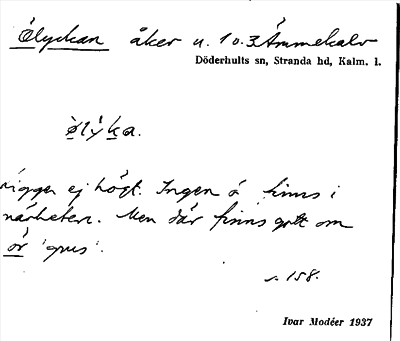 Ölyckan åker u. 1 o. 3 Ämmekalv
Döderhults sn, Stranda hd, Kalm. l.
ø̀lyka.
Ligger ej högt. Ingen å finns i
närheten. Men där finns gott om
ör 'grus'.
s. 158.
Ivar Modéer 1937